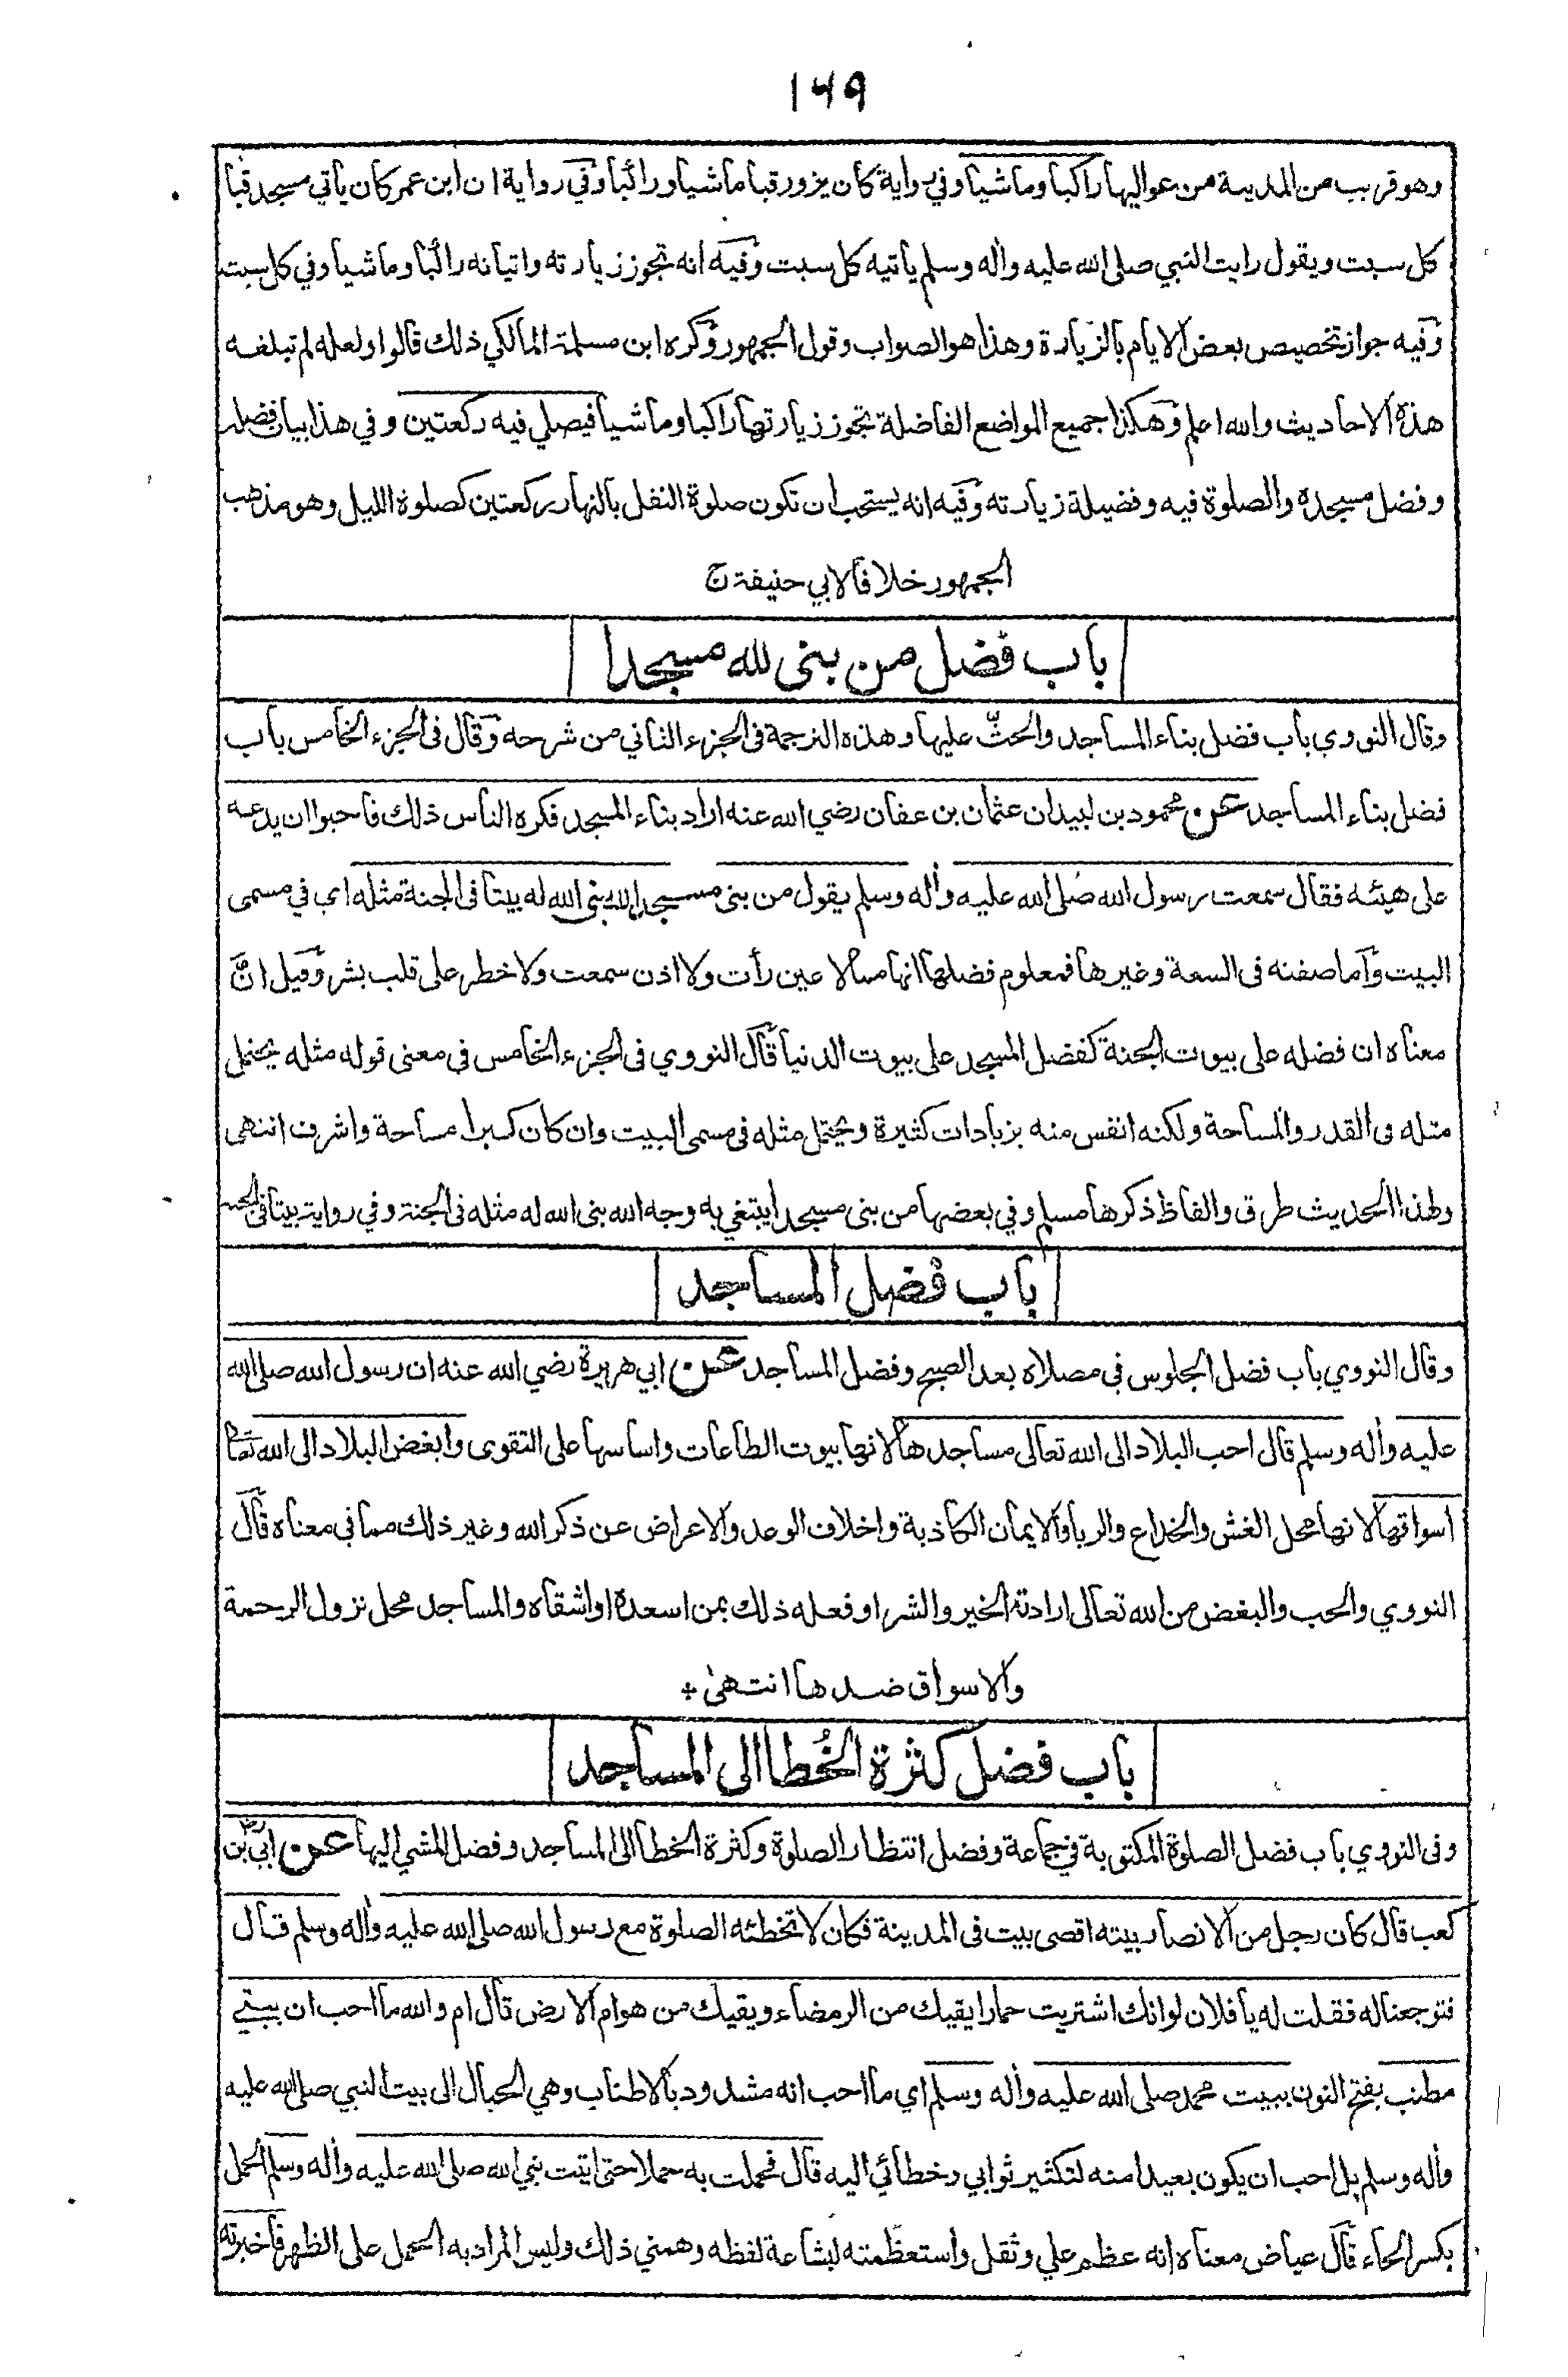 ۱۴۹
وهو قريب من المدينة من عواليها راكبا وماشيا وفي رواية كان يزور قبا ماشيا وراكبا وفي رواية ان ابن عمر كان يأتي مسجد قبا
كل سبت ويقول رايت النبي صلى الله عليه وأله وسلم يأتيه كل سبت وفيه انه تجوز زيارته واتيانه راكبا وماشيا وفي كل سبت
وفيه جواز تخصيص بعض الايام بالزيارة وهذا هو الصواب وقول الجمهور وكره ابن مسلمة المالكي ذلك قالوا ولعله لم تبلغه
هذه الاحاديث والله اعلم وهكذا جميع المواضع الفاضلة تجوز زيارتها راكبا وماشيا فيصلي فيه ركعتين وفي هذا بيان فضله
وفضل مسجده والصلوة فيه وفضيلة زيارته وفيه انه يستحب ان تكون صلوة النفل بالنهار ركعتين كصلوة الليل وهو مذهب
الجمهور خلافا لابي حنيفة
باب فضل من بنى لله مسجدا
وقال النووي باب فضل بناء المساجد والحثّ عليها وهذه الترجمة في الجزء الثاني من شرحه وقال في الجزء الخامس باب
فضل بناء المساجد عن محمود بن لبيد ان عثمان بن عفان رضي الله عنه اراد بناء المسجد فكره الناس ذلك فاحبوا ان يدعه
على هيئته فقال سمعت رسول الله صلى الله عليه وأله وسلم يقول من بنى مسجدا لله بنى الله له بيتا في الجنة مثله اي في مسمى
البيت وأما صفته في السعة وغيرها فمعلوم فضلها انها مما لا عين رأت ولا اذن سمعت ولا خطر على قلب بشر وقيل انّ
معناه ان فضله على بيوت الجنة كفضل المسجد على بيوت الدنيا قال النووي في الجزء الخامس في معنى قوله مثله يحتمل
مثله في القدر والمساحة ولكنه انفس منه بزيادات كثيرة ويحتمل مثله في مسمى البيت وان كان كبرا مساحة واشرف انتهى
ولهذا الحديث طرق والفاظ ذكرها مسلم وفي بعضها من بنى مسجدا يبتغي به وجه الله بنى الله له مثله في الجنة وفي رواية بيتا في الجنة
باب فضل المساجد
وقال النووي باب فضل الجلوس في مصلاه بعد الصبح وفضل المساجد عن ابي هريرة رضي الله عنه ان رسول الله صلى الله
عليه وأله وسلم قال احب البلاد الى الله تعالى مساجدها لانها بيوت الطاعات واساسها على التقوى وابغض البلاد الى الله تعالى
اسواقها لانها محل الغش والخداع والربا والايمان الكاذبة واخلاف الوعد والاعراض عن ذكر الله وغير ذلك مما في معناه قال
النووي والحب والبغض من الله تعالى ارادته الخير والشر او فعله ذلك بمن اسعده او اشقاه والمساجد محل نزول الرحمة
والاسواق ضدها انتهى +
باب فضل كثرة الخُطا الى المساجد
وفي النووي باب فضل الصلوة المكتوبة في جماعة وفضل انتظار الصلوة وكثرة الخطا الى المساجد وفضل المشي اليها عن ابيّ بن
كعب قال كان رجل من الانصار بيته اقصى بيت في المدينة فكان لا تخطئه الصلوة مع رسول الله صلى الله عليه وأله وسلم قال
فتوجعنا له فقلت له يا فلان لو انك اشتريت حمارا يقيك من الرمضاء ويقيك من هوام الارض قال ام والله ما احب ان بيتي
مطنب بفتح النون ببيت محمد صلى الله عليه وأله وسلم اي ما احب انه مشدود بالاطناب وهي الحبال الى بيت النبي صلى الله عليه
وأله وسلم بل احب ان يكون بعيدا منه لتكثير ثوابي وخطائي اليه قال فحملت به حملا حتى اتيت نبي الله صلى الله عليه وأله وسلم الحمل
بكسر الحاء قال عياض معناه انه عظم علي وثقل واستعظمته لبشاعة لفظه وهمني ذلك وليس المراد به الحمل على الظهر فاخبرته